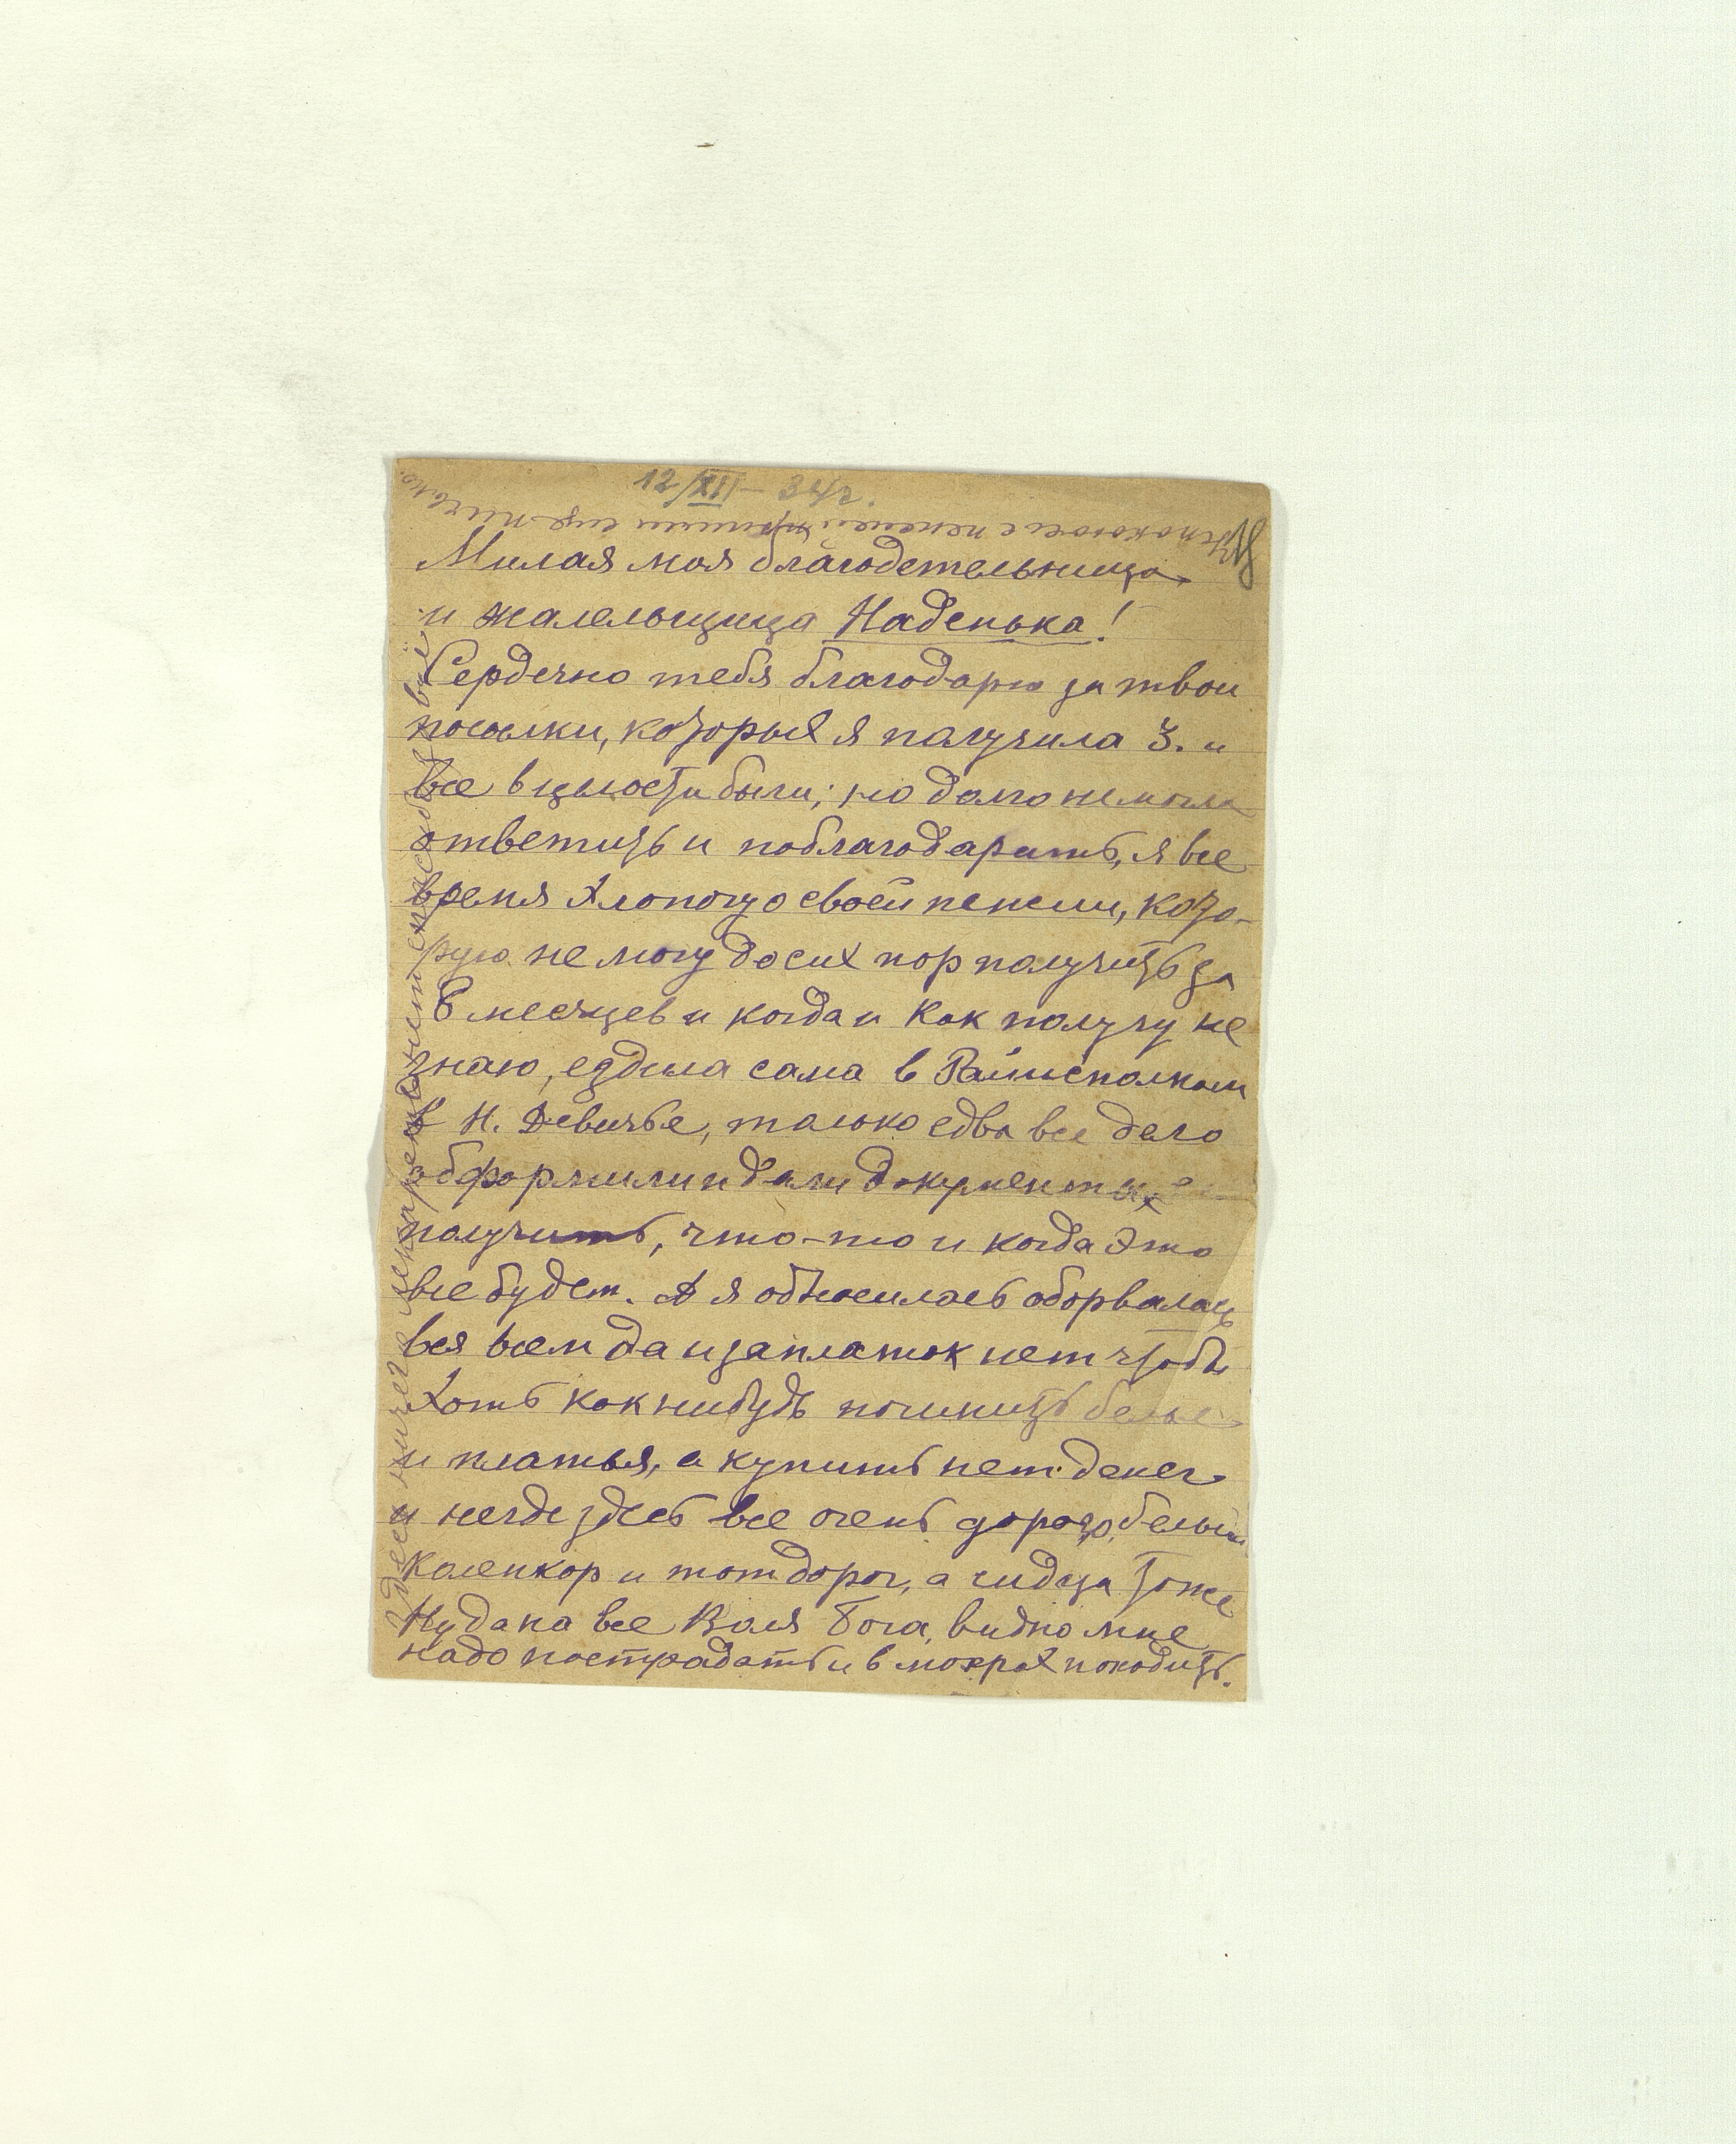 12/XII – 34 г.
Успокоюсь с пенсией напишу еще письмо.
Милая моя благодетельница
и жалельщица Наденька!
Сердечно тебя благодарю за твои
посылки, которых я получила 3. и
все в целости были; но долго не могла
ответить и поблагодарить, я все
время хлопочу о своей пенсии, кото-
рую не могу до сих пор получить за
6 месяцев и когда и как получу не
знаю, ездила сама в Райисполком
в Н. Девичье, только едва все дело
обформили и дали документы
получить, что-то и когда это
все будет. А я обносилась оборвалась
вся всем да и заплаток нет чтобы
хоть как нибудь починить белье
и платья, а купить нет денег
и негде здесь все очень дорого, белый
коленкор и тот дорог, а сидца тоже
Ну да на все Воля Бога, видно мне
надо пострадать и в мокрах походить.
Здесь ничего